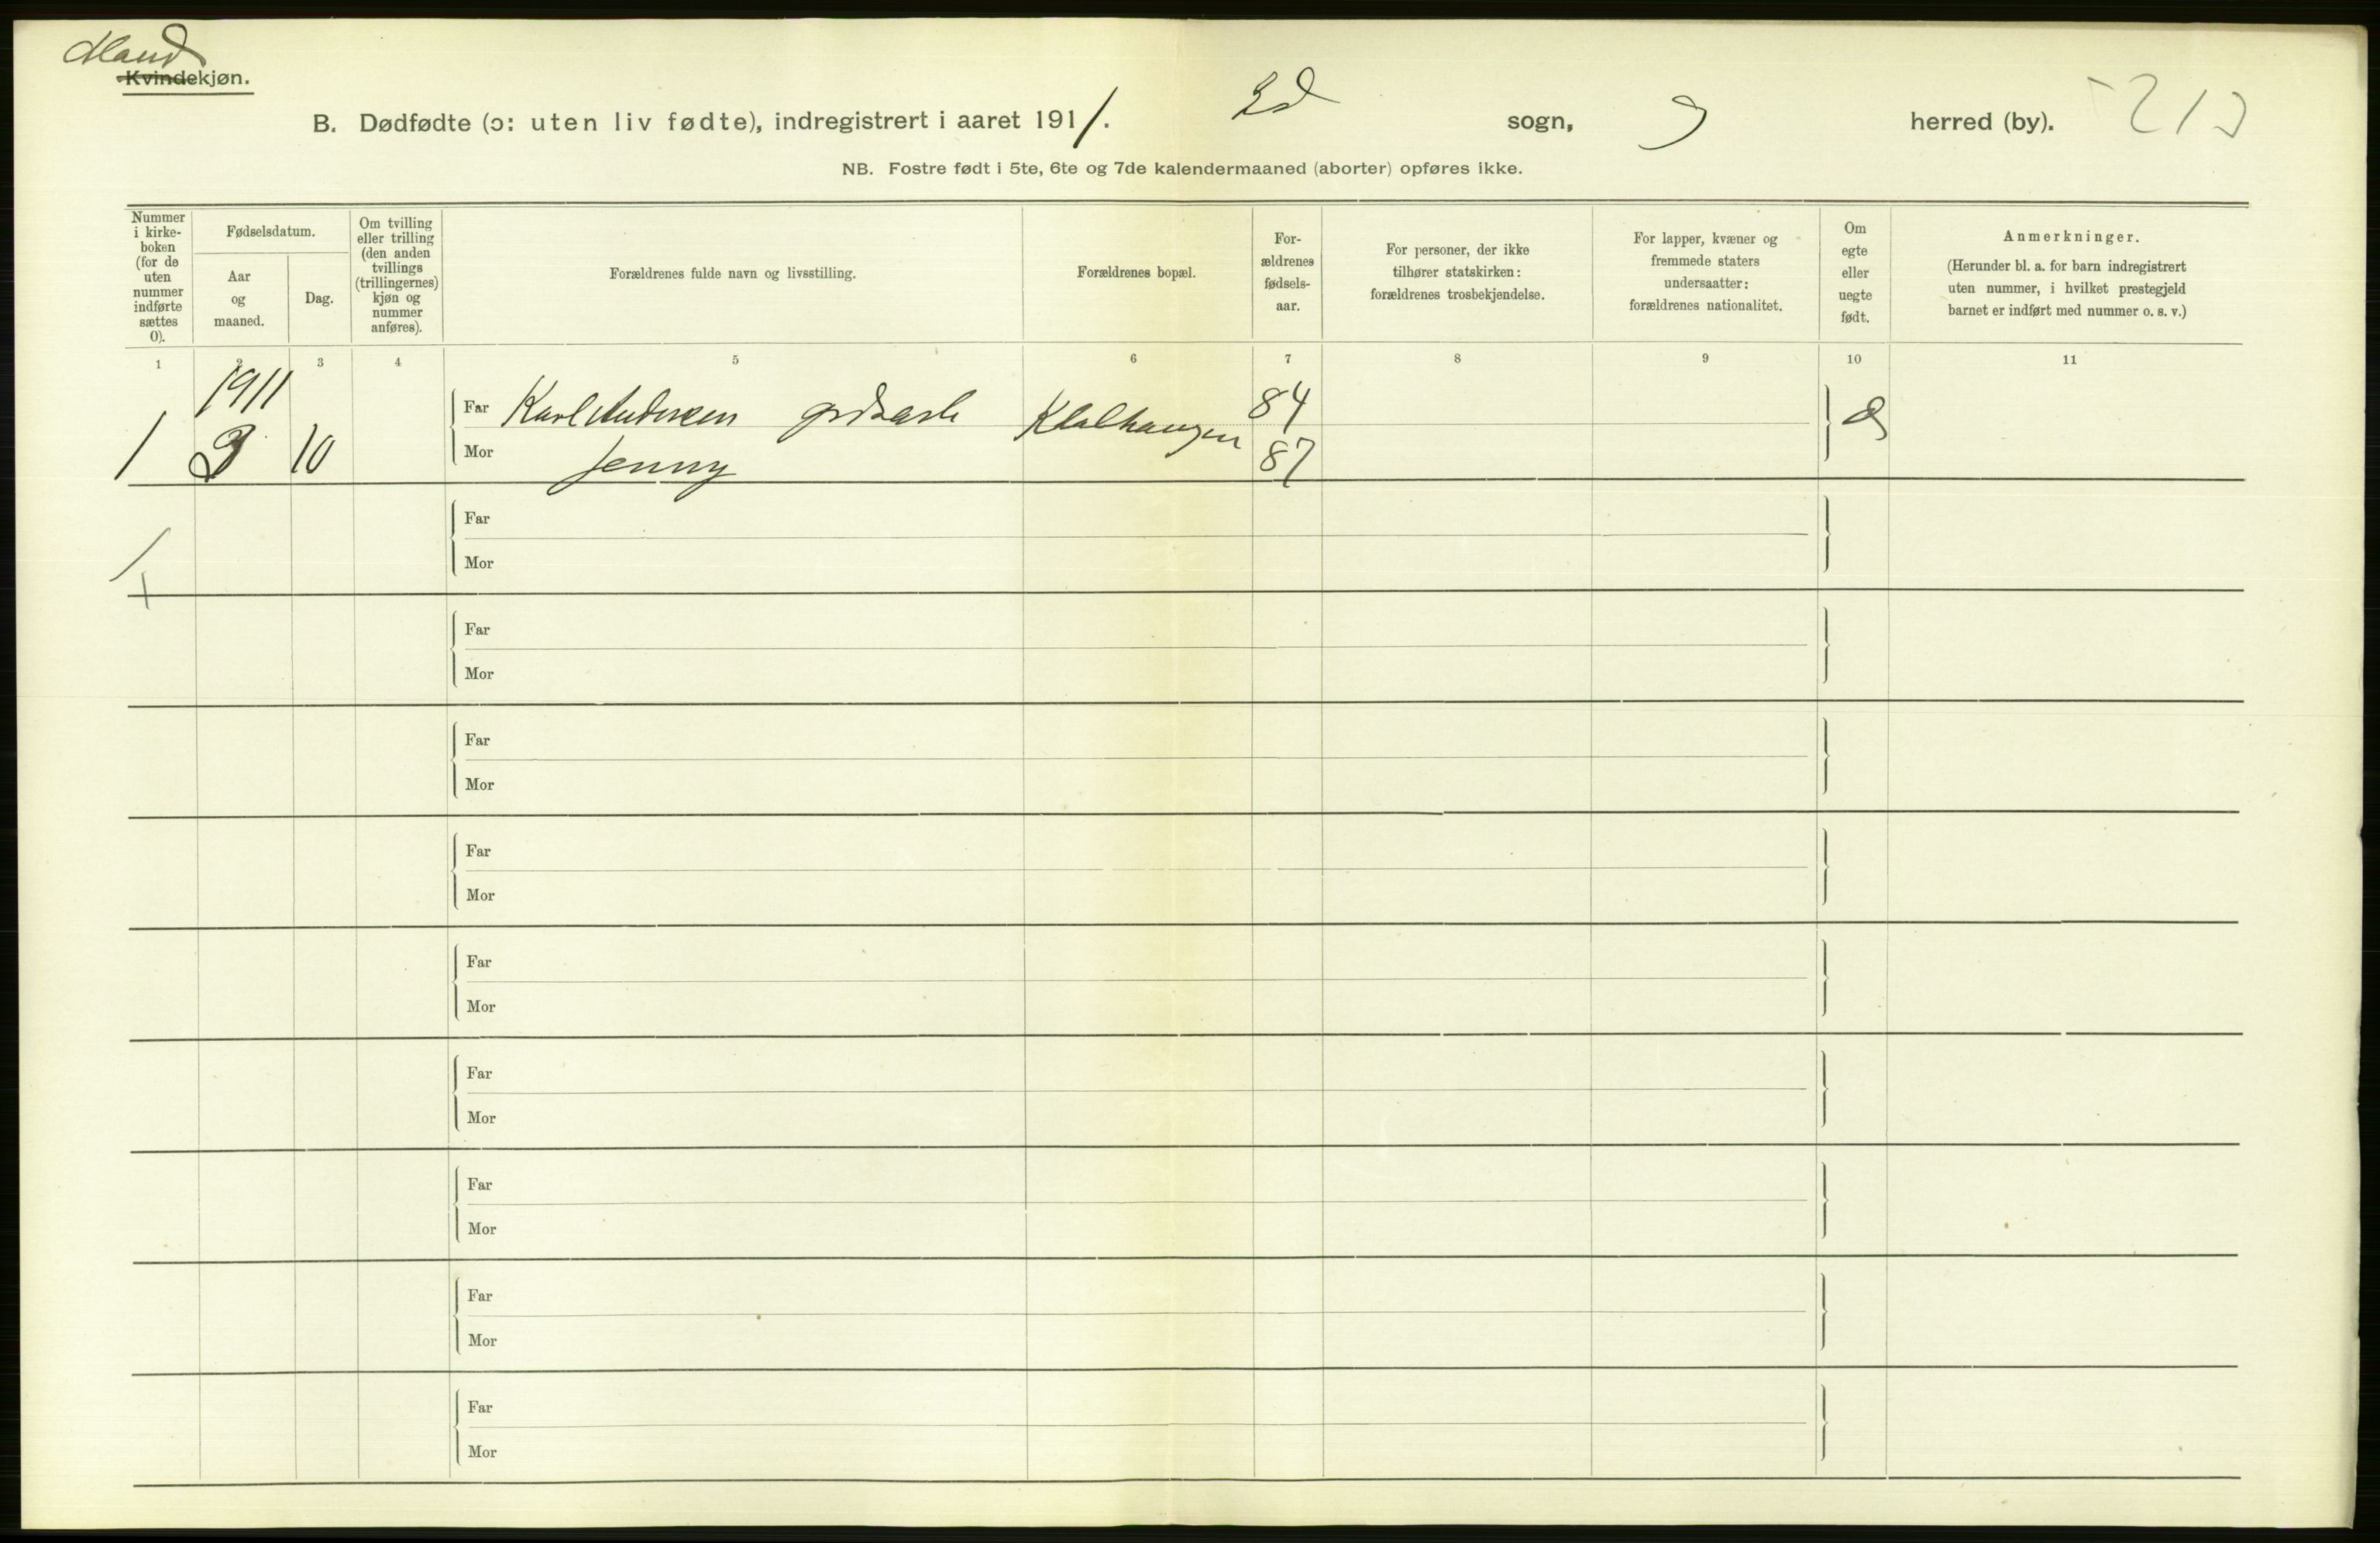 Mand
Kvindekjøn.
B. Dødfødte (ɔ: uten liv fødte), indregistrert i aaret 1911. sogn, herred (by).
NB. Fostre født i 5te, 6te og 7de kalendermaaned (aborter) opføres ikke.
Nummer
i kirke-
boken
(for de
uten
nummer
indførte
sættes
0).
Fødselsdatum.
Aar
og
maaned.
Dag.
Om tvilling
eller trilling
(den anden
tvillings
(trillingernes)
kjøn og
nummer
anføres).
Forældrenes fulde navn og livsstilling.
Forældrenes bopæl.
For-
ældrenes
fødsels-
aar.
For personer, der ikke
tilhører statskirken:
forældrenes trosbekjendelse.
For lapper, kvæner og
fremmede staters
undersaatter:
forældrenes nationalitet.
Om
egte
eller
uegte
født.
Anmerkninger.
(Herunder bl. a. for barn indregistrert
uten nummer, i hvilket prestegjeld
barnet er indført med nummer o. s. v.)
1 2 3 4 5 6 7 8 9 10 11
1911
Far Karl Andersen 84
1 3 10
Mor Jenny 87
Far
Mor
Far
Mor
Far
Mor
Far
Mor
Far
Mor
Far
Mor
Far
Mor
Far
Mor
Far
Mor